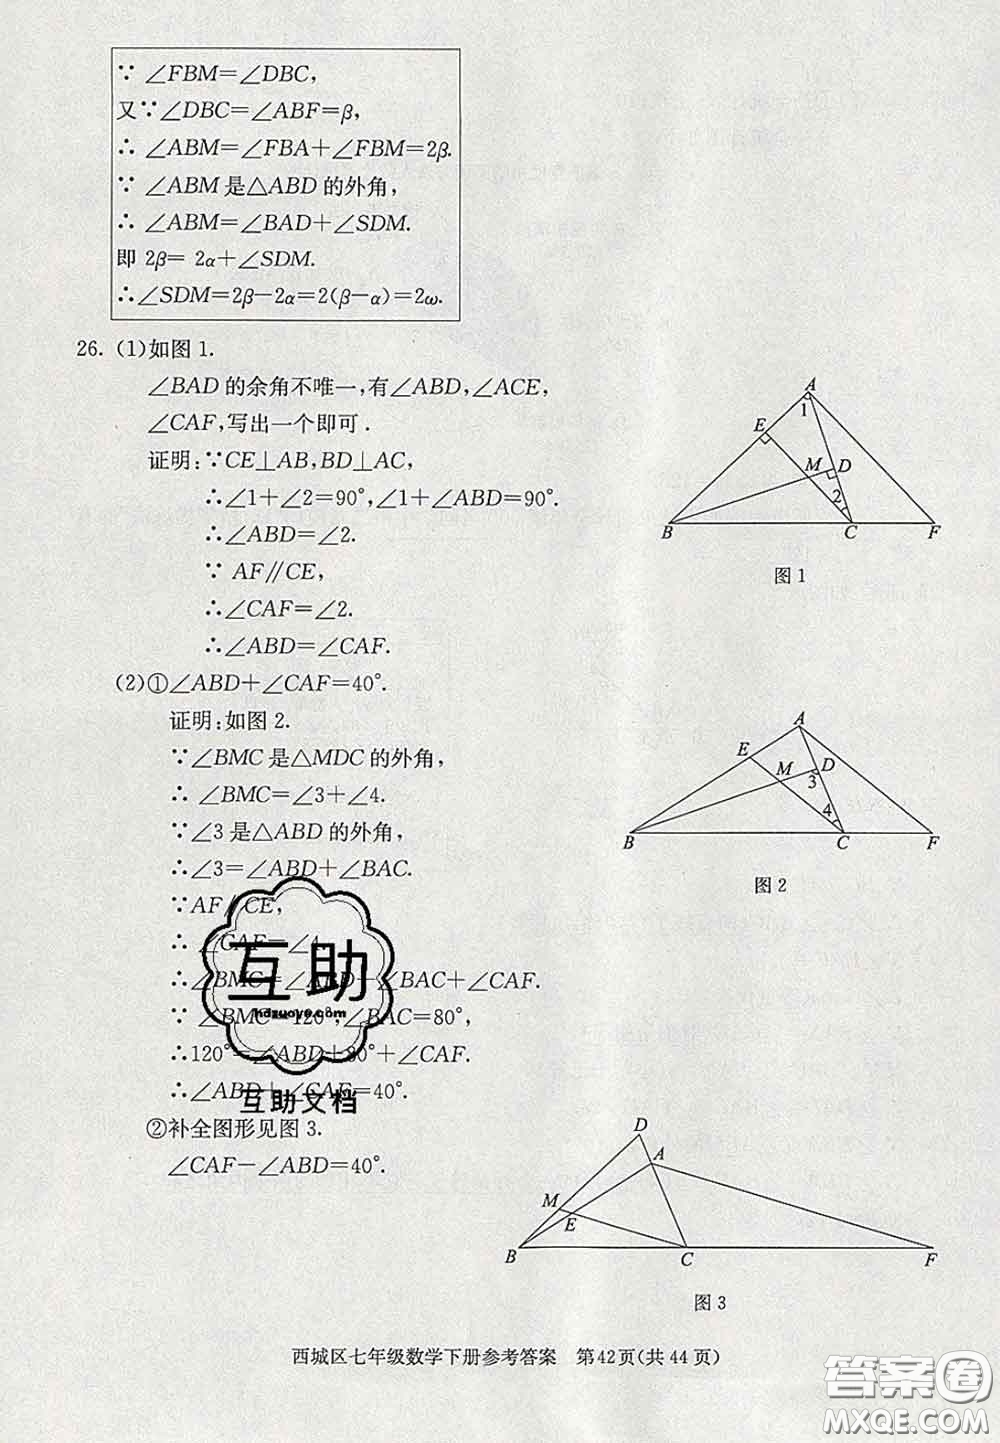 ∵ ∠FBM=∠DBC,
又∵∠DBC=∠ABF=β,
∴ ∠ABM=∠FBA+∠FBM=2β.
∵ ∠ABM 是△ABD 的外角,
∴ ∠ABM=∠BAD+∠SDM.
即 2β= 2α+∠SDM.
∴∠SDM=2β−2α=2(β−α)=2ω.
26. (1)如图 1.
∠BAD 的余角不唯一,有∠ABD,∠ACE,
∠CAF,写出一个即可.
证明:∵CE⊥AB,BD⊥AC,
∴∠1+∠2=90°,∠1+∠ABD=90°.
∴∠ABD=∠2.
∵ AF∥CE,
∴∠CAF=∠2.
∴∠ABD=∠CAF.
A
1
E
M
D
2
B
C
F
图 1
(2)①∠ABD+∠CAF=40°.
证明:如图 2.
∵∠BMC 是△MDC 的外角,
∴ ∠BMC=∠3+∠4.
∵∠3 是△ABD 的外角,
∴∠3=∠ABD+∠BAC.
∵AF∥CE,
∴ ∠CAF=∠4.
∴∠BMC=∠ABD+∠BAC+∠CAF.
∵ ∠BMC=120°,∠BAC=80°,
∴120°=∠ABD+80°+∠CAF.
∴∠ABD+∠CAF=40°.
A
E
M
D
3
4
B
C
F
图 2
②补全图形见图 3.
∠CAF−∠ABD=40°.
D
A
M
E
B
C
F
图 3
互助
hdzuoye.com
互助文档
西城区七年级数学下册参考答案 第42页(共 44 页)
答案圈
MXQE.COM